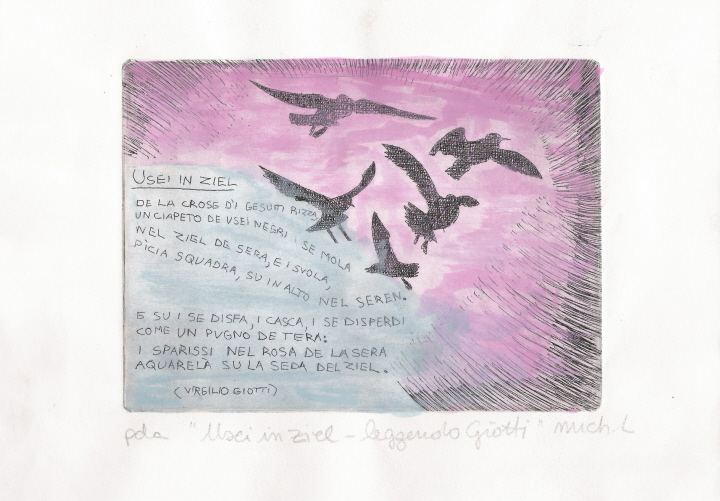 USEI IN ZIEL
DE LA CROSE D'I GESUITI RIZZA,
UN CIAPETO DE USEI NEGRI I SE MOLA
NEL ZIEL DE SERA, E I SVOLA,
PÌCIA SQUADRA, SU IN ALTO NEL SEREN.
E SU I SE DISFA, I CASCA, I SE DISPERDI
COME UN PUGNO DE TERA:
I SPARISSI NEL ROSA DE LA SERA
AQUARELÀ SU LA SEDA DEL ZIEL.
(VIRGILIO GIOTTI)
pda "Usei in ziel - leggendo Giotti"